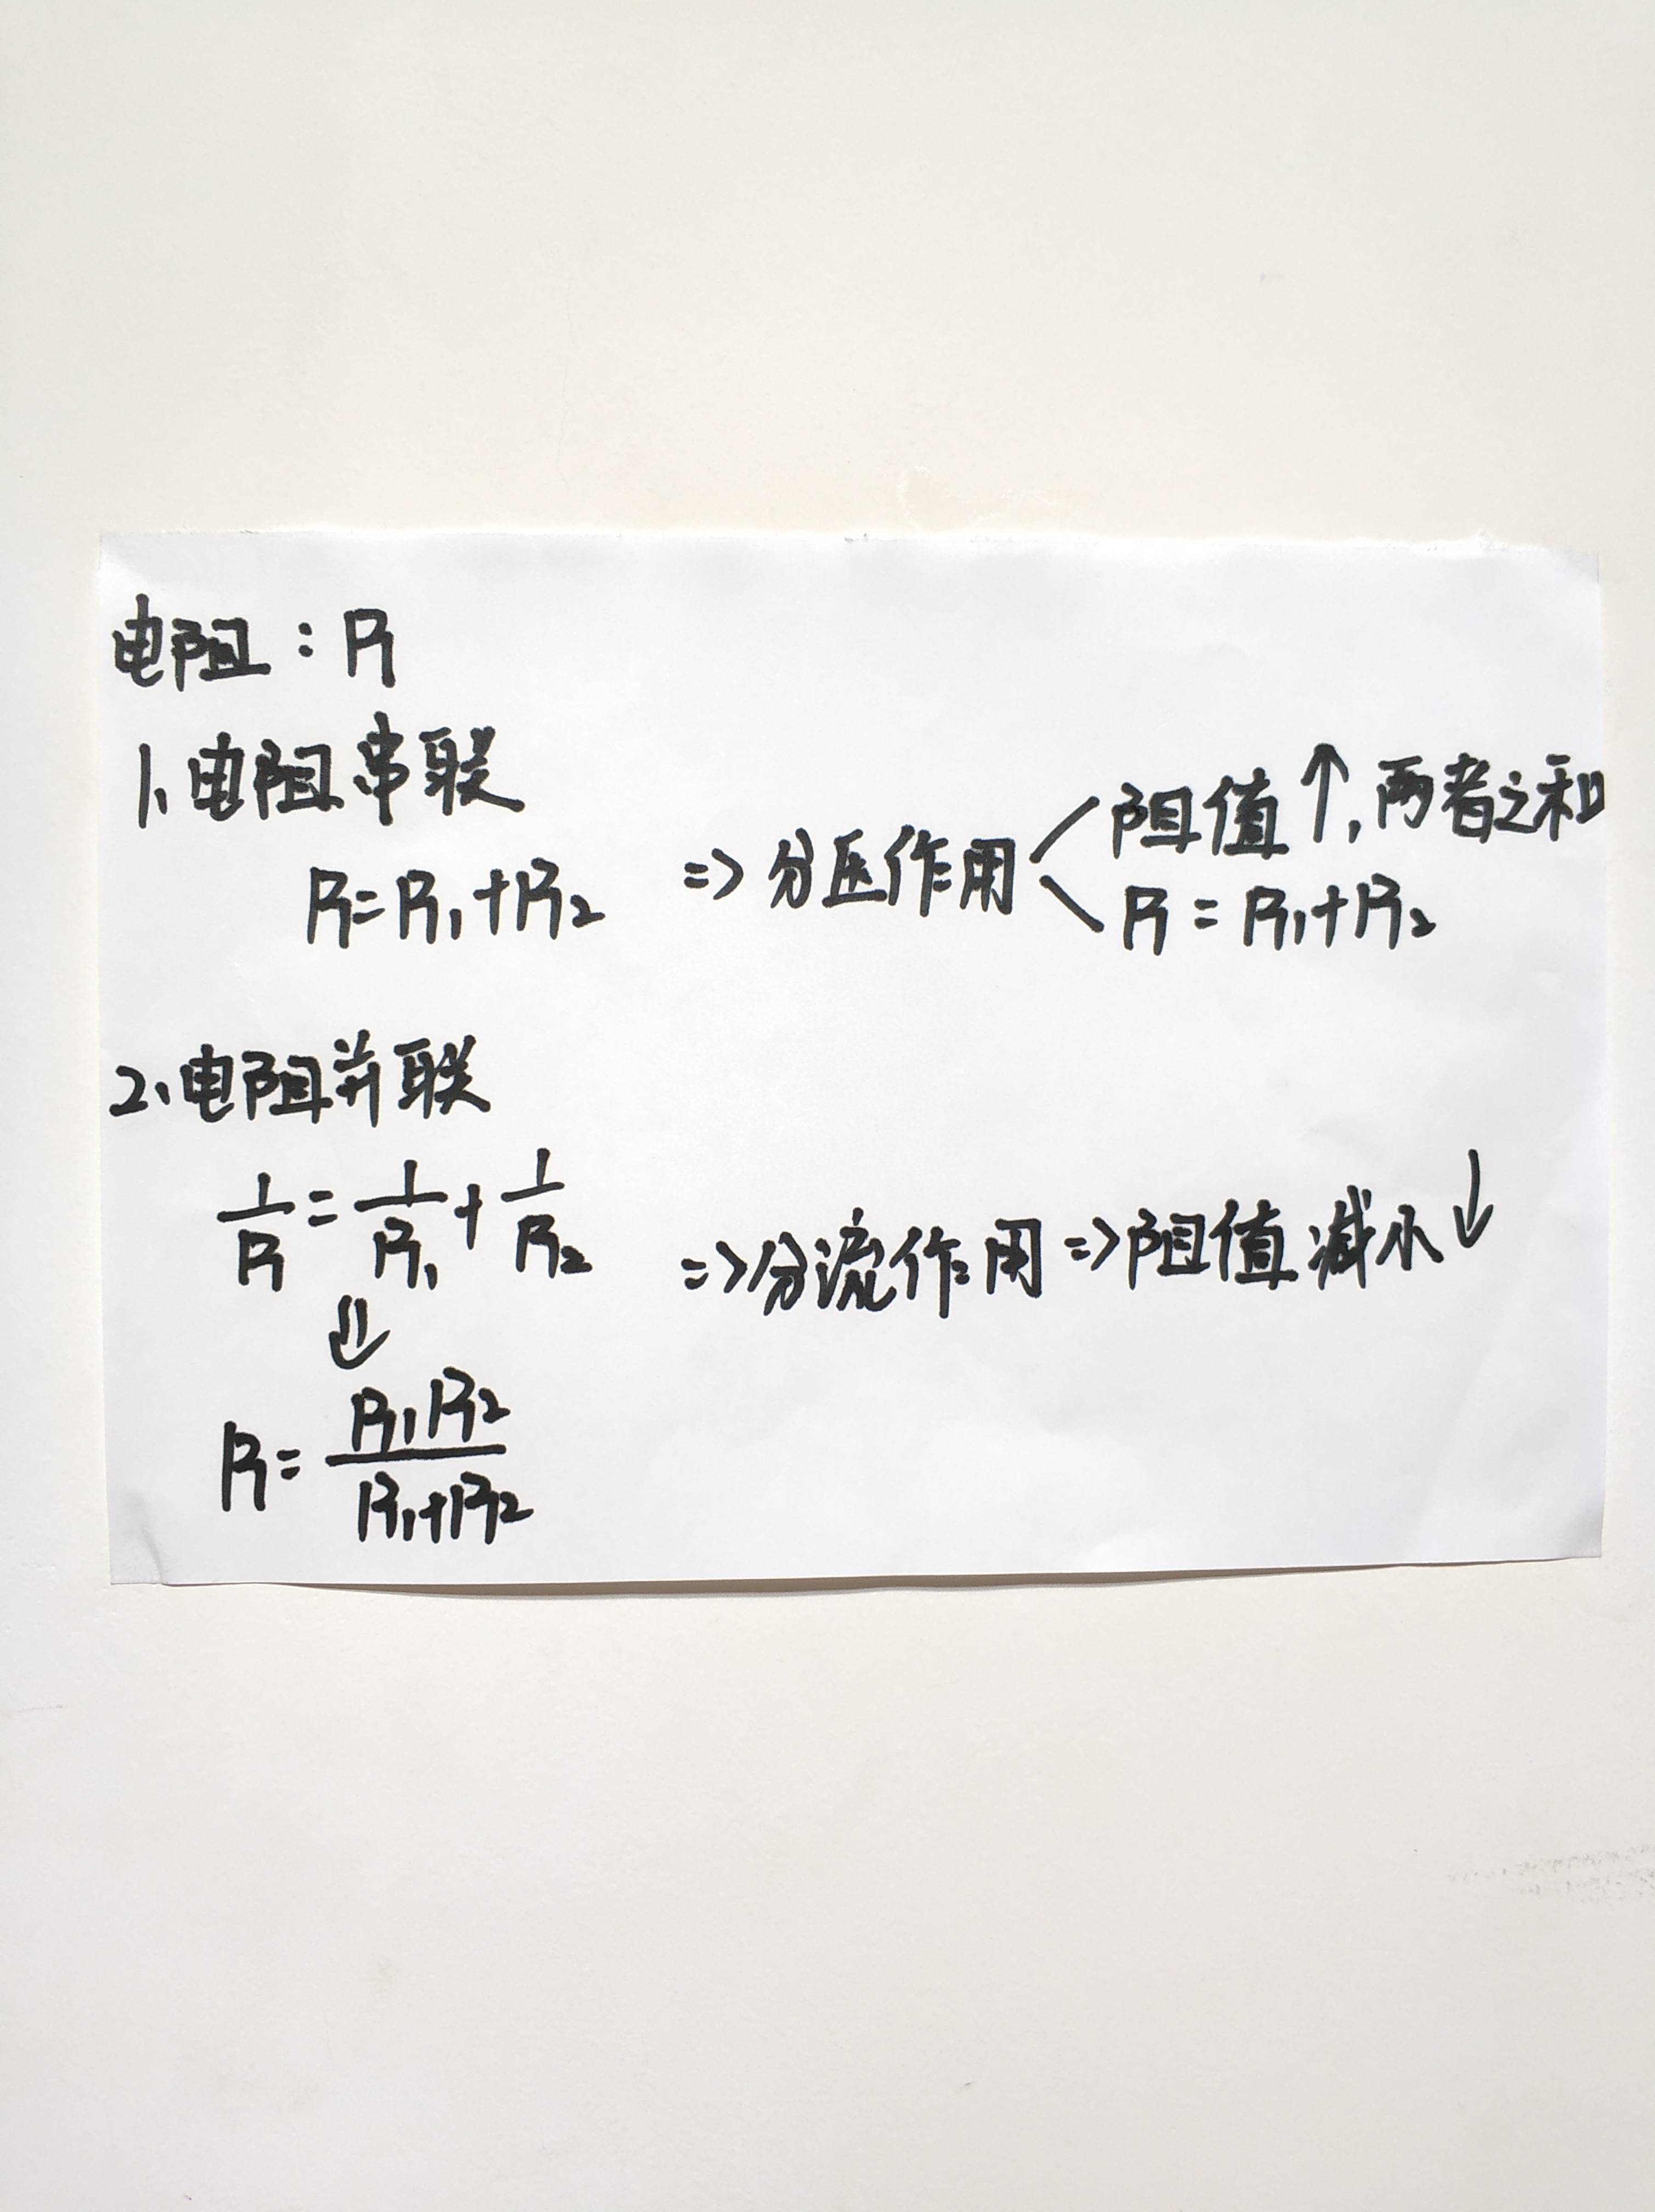 电阻：R
1、电阻串联
R=R₁+R₂ => 分压作用 < 阻值↑,两者之和
R=R₁+R₂
2、电阻并联
1/R=1/R₁+1/R₂ => 分流作用 => 阻值减小↓
⇓
R=R₁R₂/R₁+R₂